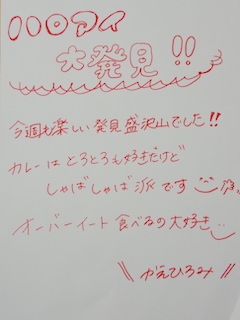 大発見!!
今週も楽しい発見盛沢山でした!!
カレーはとろとろも好きだけど
しゃばしゃば派です
オーバーイート食べるの大好き
かえひろみ